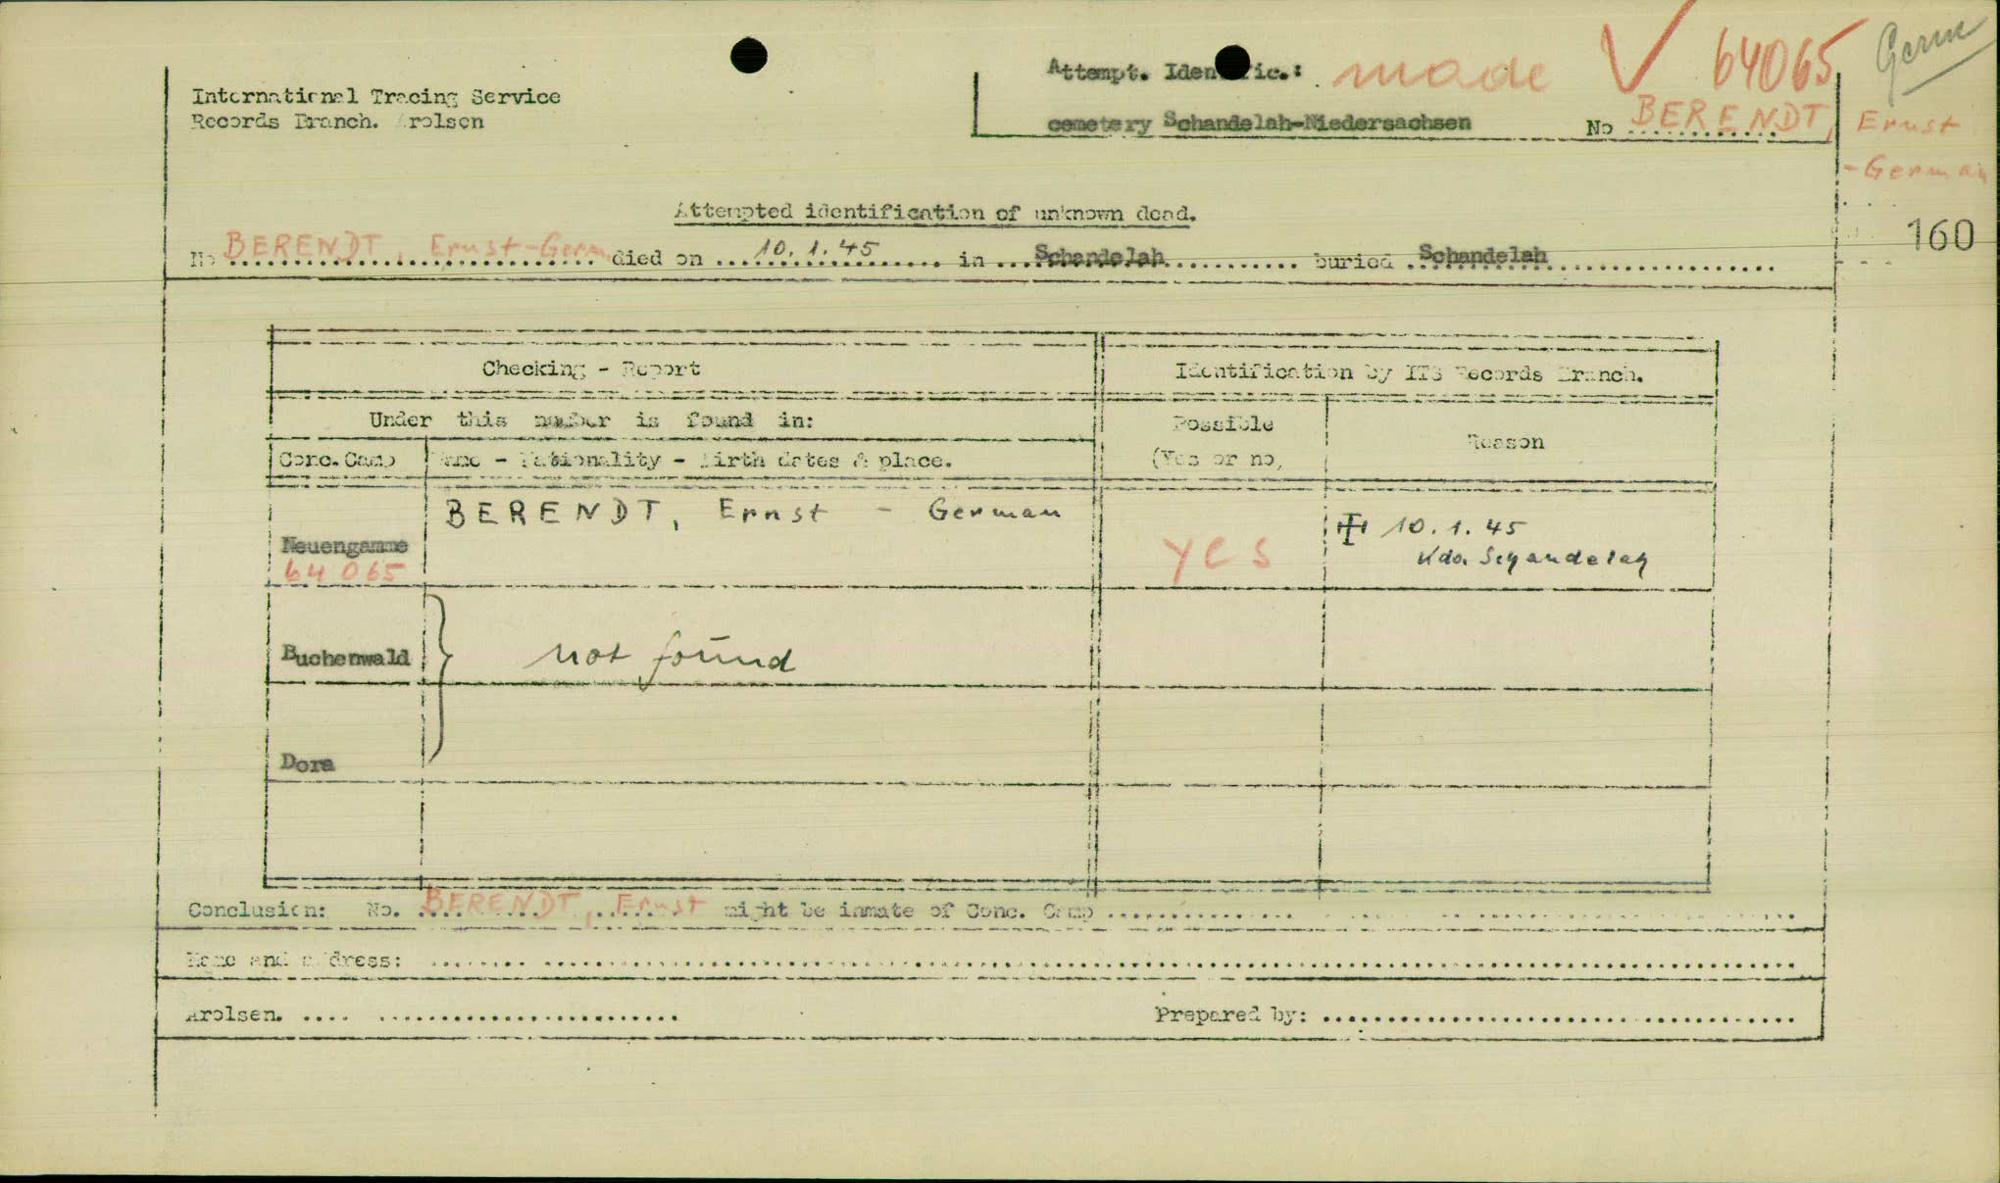 International Tracing Service
Records Branch. Arolsen
Attempt. Identific.: made
cemetery Schandelah-Niedersachsen No BERENDT, Ernst
- German
64065
Germ
160
Attempted identification of unknown dead.
No BERENDT, Ernst-Germ. died on 10.1.45 in Schandelah buried Schandelah
Checking - Report
Identification by ITS Records Branch.
Under this number is found in:
Possible
(Yes or no,
Reason
Conc. Camp
Name - Nationality - Birth dates & place.
Neuengamme
64 065
BERENDT, Ernst - German
yes
10.1.45
Kdo. Schandelah
Buchenwald
not found
Dora
Conclusion: No. BERENDT, Ernst might be inmate of Conc. Camp
Name and address:
Arolsen.
Prepared by: